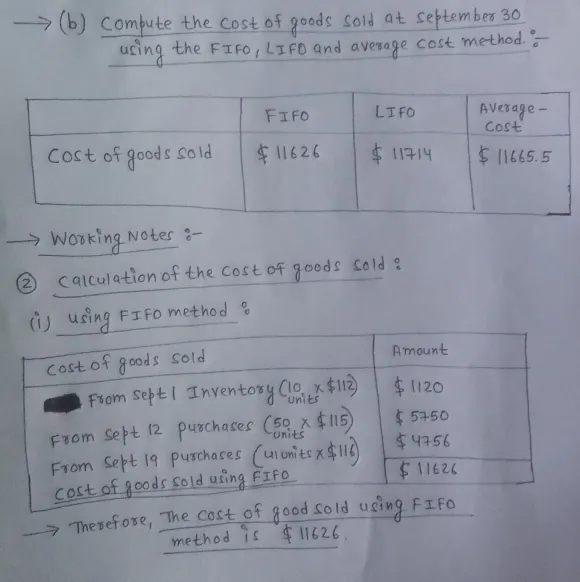 → (b) Compute the cost of goods sold at september 30
using the FIFO, LIFO and average cost method. :-
FIFO LIFO Average-
Cost
Cost of goods sold $ 11626 $ 11714 $ 11665.5
→ Working Notes :-
② Calculation of the cost of goods sold :
(i) using FIFO method :
Cost of goods sold Amount
From Sept 1 Inventory (10 units x $112) $ 1120
From Sept 12 purchases (50 units x $115) $ 5750
From Sept 19 purchases (41 units x $116) $ 4756
Cost of goods sold using FIFO $ 11626
→ Therefore, The cost of good sold using FIFO
method is $ 11626.